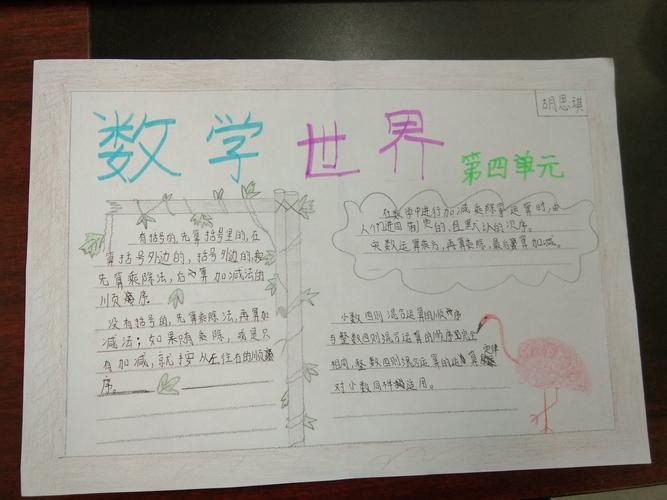 数学世界
第四单元
胡思琪
有括号的,先算括号里的,在
算括号外边的,括号外边的,按
先算乘除法,后算加减法的
顺序。
没有括号的,先算乘除法,再算加
减法;如果只有乘除,或是只
有加减,就按从左往右的顺
序。
在数学中进行加减乘除等运算时,由
人们进回制定的,且默认的次序。
为,再算乘除,最后算加减。
小数四则混合运算的顺序
与整数四则混合运算的顺序完全
相同,整数四则混合运算的运算定律
对小数同样适用。